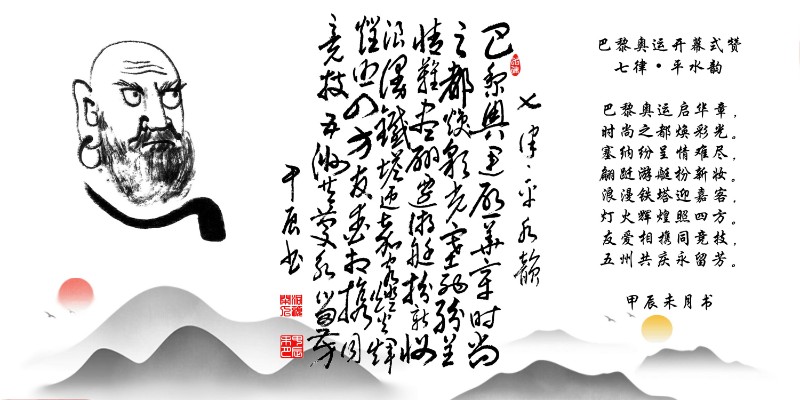 巴黎奥运开幕式赞
七律·平水韵
巴黎奥运启华章，
时尚之都焕彩光。
塞纳纷呈情难尽，
翩跹游艇扮新妆。
浪漫铁塔迎嘉客，
灯火辉煌照四方。
友爱相携同竞技，
五州共庆永留芳。
甲辰未月书
七律·平水韻
巴黎奥運启華章时尚
之都焕彩光塞纳纷呈
情難尽翩跹游艇扮新妆
浪漫鐵塔迎嘉客灯火輝
煌照四方友爱相携同
竞技五洲共庆永留芳
甲辰书